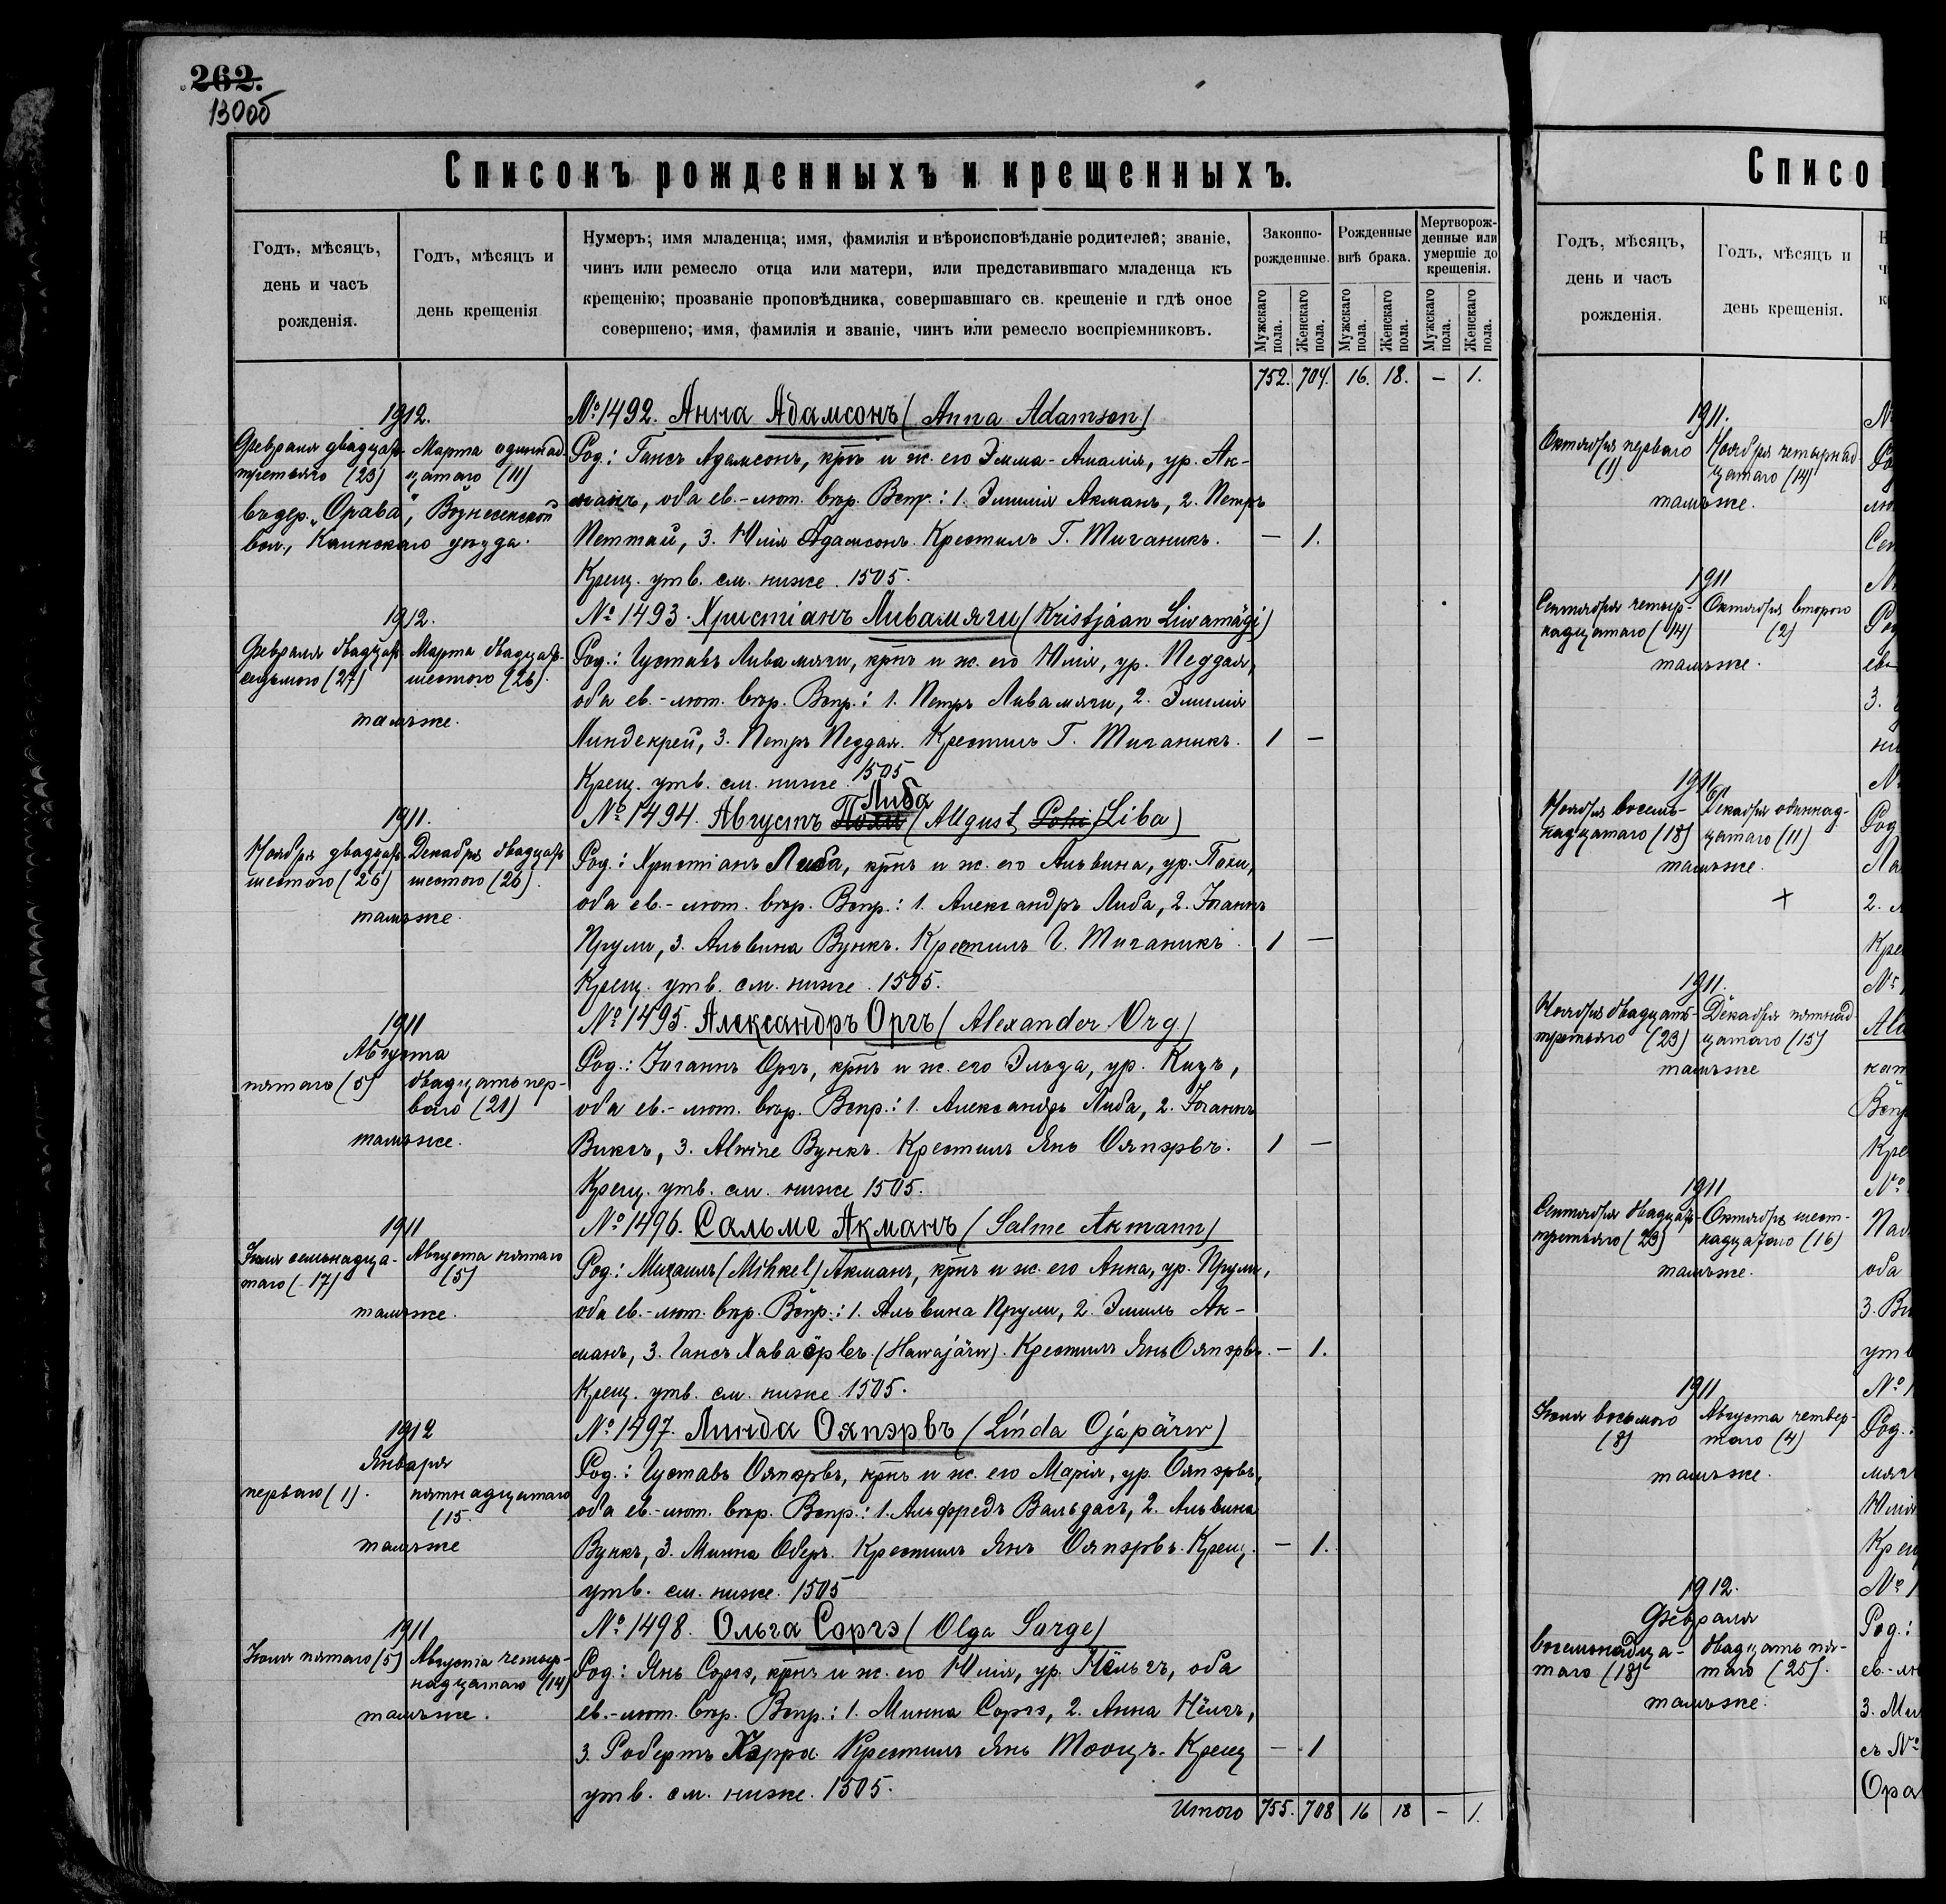 262.
130об
Списокъ рожденныхъ и крещенныхъ.
Годъ, мѣсяцъ,
день и часъ
рожденія.
Годъ, мѣсяцъ и
день крещенія
Нумеръ; имя младенца; имя, фамилія и вѣроисповѣданіе родителей; званіе,
чинъ или ремесло отца или матери, или представившаго младенца къ
крещенію; прозваніе проповѣдника, совершавшаго св. крещеніе и гдѣ оное
совершено; имя, фамилія и званіе, чинъ или ремесло воспріемниковъ.
Законно-
рожденные.
Рожденные
внѣ брака.
Мертворож-
денные или
умершіе до
крещенія.
Мужскаго пола.
Женскаго пола.
Мужскаго пола.
Женскаго пола.
Мужскаго пола.
Женскаго пола.
752. 704. 16. 18. — 1.
1912.
Февраля двадцать
третьяго (23)
Марта одиннад
цатаго (11)
въ дер. „Орава", Вознесенской
вол., Каинскаго уѣзда.
№ 1492. Анна Адамсонъ (Anna Adamson)
Род.: Гансъ Адамсонъ, крнъ и ж. его Эмма-Амалія, ур. Ак-
манъ, оба ев.-лют. вѣр. Вспр.: 1. Эмилія Акманъ, 2. Петръ
Петтай, 3. Юлія Адамсонъ. Крестилъ Г. Тиганикъ. — 1.
Крещ. утв. см. ниже. 1505.
1912.
Февраля двадцать
седьмого (27)
Марта двадцать-
шестого (26).
тамъ же.
№ 1493. Христіанъ Ливамяги (Kristjaan Liiwamägi)
Род.: Густавъ Ливамяги, крнъ и ж. его Юлія, ур. Педдая,
оба ев.-лют. вѣр. Вспр.: 1. Петръ Ливамяги, 2. Эмилія
Линдекрей, 3. Петръ Педдая. Крестилъ Г. Тиганикъ. 1 —
Крещ. утв. см. ниже 1505
1911.
Ноября двадцать
шестого (26)
Декабря двадцать
шестого (26).
тамъ же.
Либа
№ 1494. Августъ Поли (August Pohi Liba)
Род.: Христіанъ Либа, крнъ и ж. его Альвина, ур. Поги,
оба ев.-лют. вѣр. Вспр.: 1. Александръ Либа, 2. Іоганнъ
Прули, 3. Альвина Вункъ. Крестилъ Г. Тиганикъ. 1 —
Крещ. утв. см. ниже. 1505.
1911
Августа
пятаго (5)
двадцать пер-
ваго (21)
тамъ же.
№ 1495. Александръ Оргъ (Alexander Org)
Род.: Іоганнъ Оргъ, крнъ и ж. его Эльда, ур. Кизъ,
оба ев.-лют. вѣр. Вспр.: 1. Александръ Либа, 2. Іоганнъ
Виксъ, 3. Alwine Вункъ. Крестилъ Янъ Ояпэрвъ. 1 —
Крещ. утв. см. ниже 1505.
1911
Іюля семнадца-
таго (17)
Августа пятаго
(5)
тамъ же.
№ 1496. Сальме Акманъ (Salme Akmann)
Род.: Михаилъ (Mihkel) Акманъ, крнъ и ж. его Анна, ур. Прули,
оба ев.-лют. вѣр. Вспр.: 1. Альвина Прули, 2. Эмиль Ак-
манъ, 3. Гансъ (Hawajärw). Крестилъ Янъ Ояпэрвъ. — 1.
Крещ. утв. см. ниже 1505.
1912
Января
перваго (1).
пятнадцатаго
(15
тамъ же
№ 1497. Линда Ояпэрвъ (Linda Ojapärw)
Род.: Густавъ Ояпэрвъ, крнъ и ж. его Марія, ур. Ояпэрвъ,
оба ев.-лют. вѣр. Вспр.: 1. Альфредъ Вальдасъ, 2. Альвина
Вункъ, 3. Минна Оберъ. Крестилъ Янъ Ояпэрвъ. Крещ. — 1.
утв. см. ниже. 1505
1911
Іюля пятаго (5)
Августа четыр-
надцатаго (14)
тамъ же.
№ 1498. Ольга Соргэ (Olga Sorge)
Род.: Янъ Соргэ, крнъ и ж. его Юлія, ур. Нёльгъ, оба
ев.-лют. вѣр. Вспр.: 1. Минна Соргэ, 2. Анна Нёлгъ,
3. Робертъ Хэрра. Крестилъ Янъ Тооцъ. Крещ — 1
утв. см. ниже. 1505.
Итого 755. 708 16 18 — 1.
Списо
Годъ, мѣсяцъ,
день и часъ
рожденія.
Годъ, мѣсяцъ и
день крещенія.
1911.
Октября перваго
(1)
Ноября четырнад-
цатаго (14)
тамъ же.
1911
Сентября четыр-
надцатаго (14)
Октября второго
(2)
тамъ же.
1911
Ноября восем-
надцатаго (18)
Декабря одиннад-
цатаго (11)
тамъ же.
1911.
Ноября двадцать
третьяго (23)
Декабря пятнад
цатаго (15)
тамъ же
1911
Сентября двадцать
третьяго (23)
Октября шест-
надцатаго (16)
тамъ же.
1911
Іюля восьмого
(8)
Августа четвер-
таго (4)
тамъ же.
1912.
Февраля
восемнадца-
таго (18)
двадцать пя-
таго (25).
тамъ же.